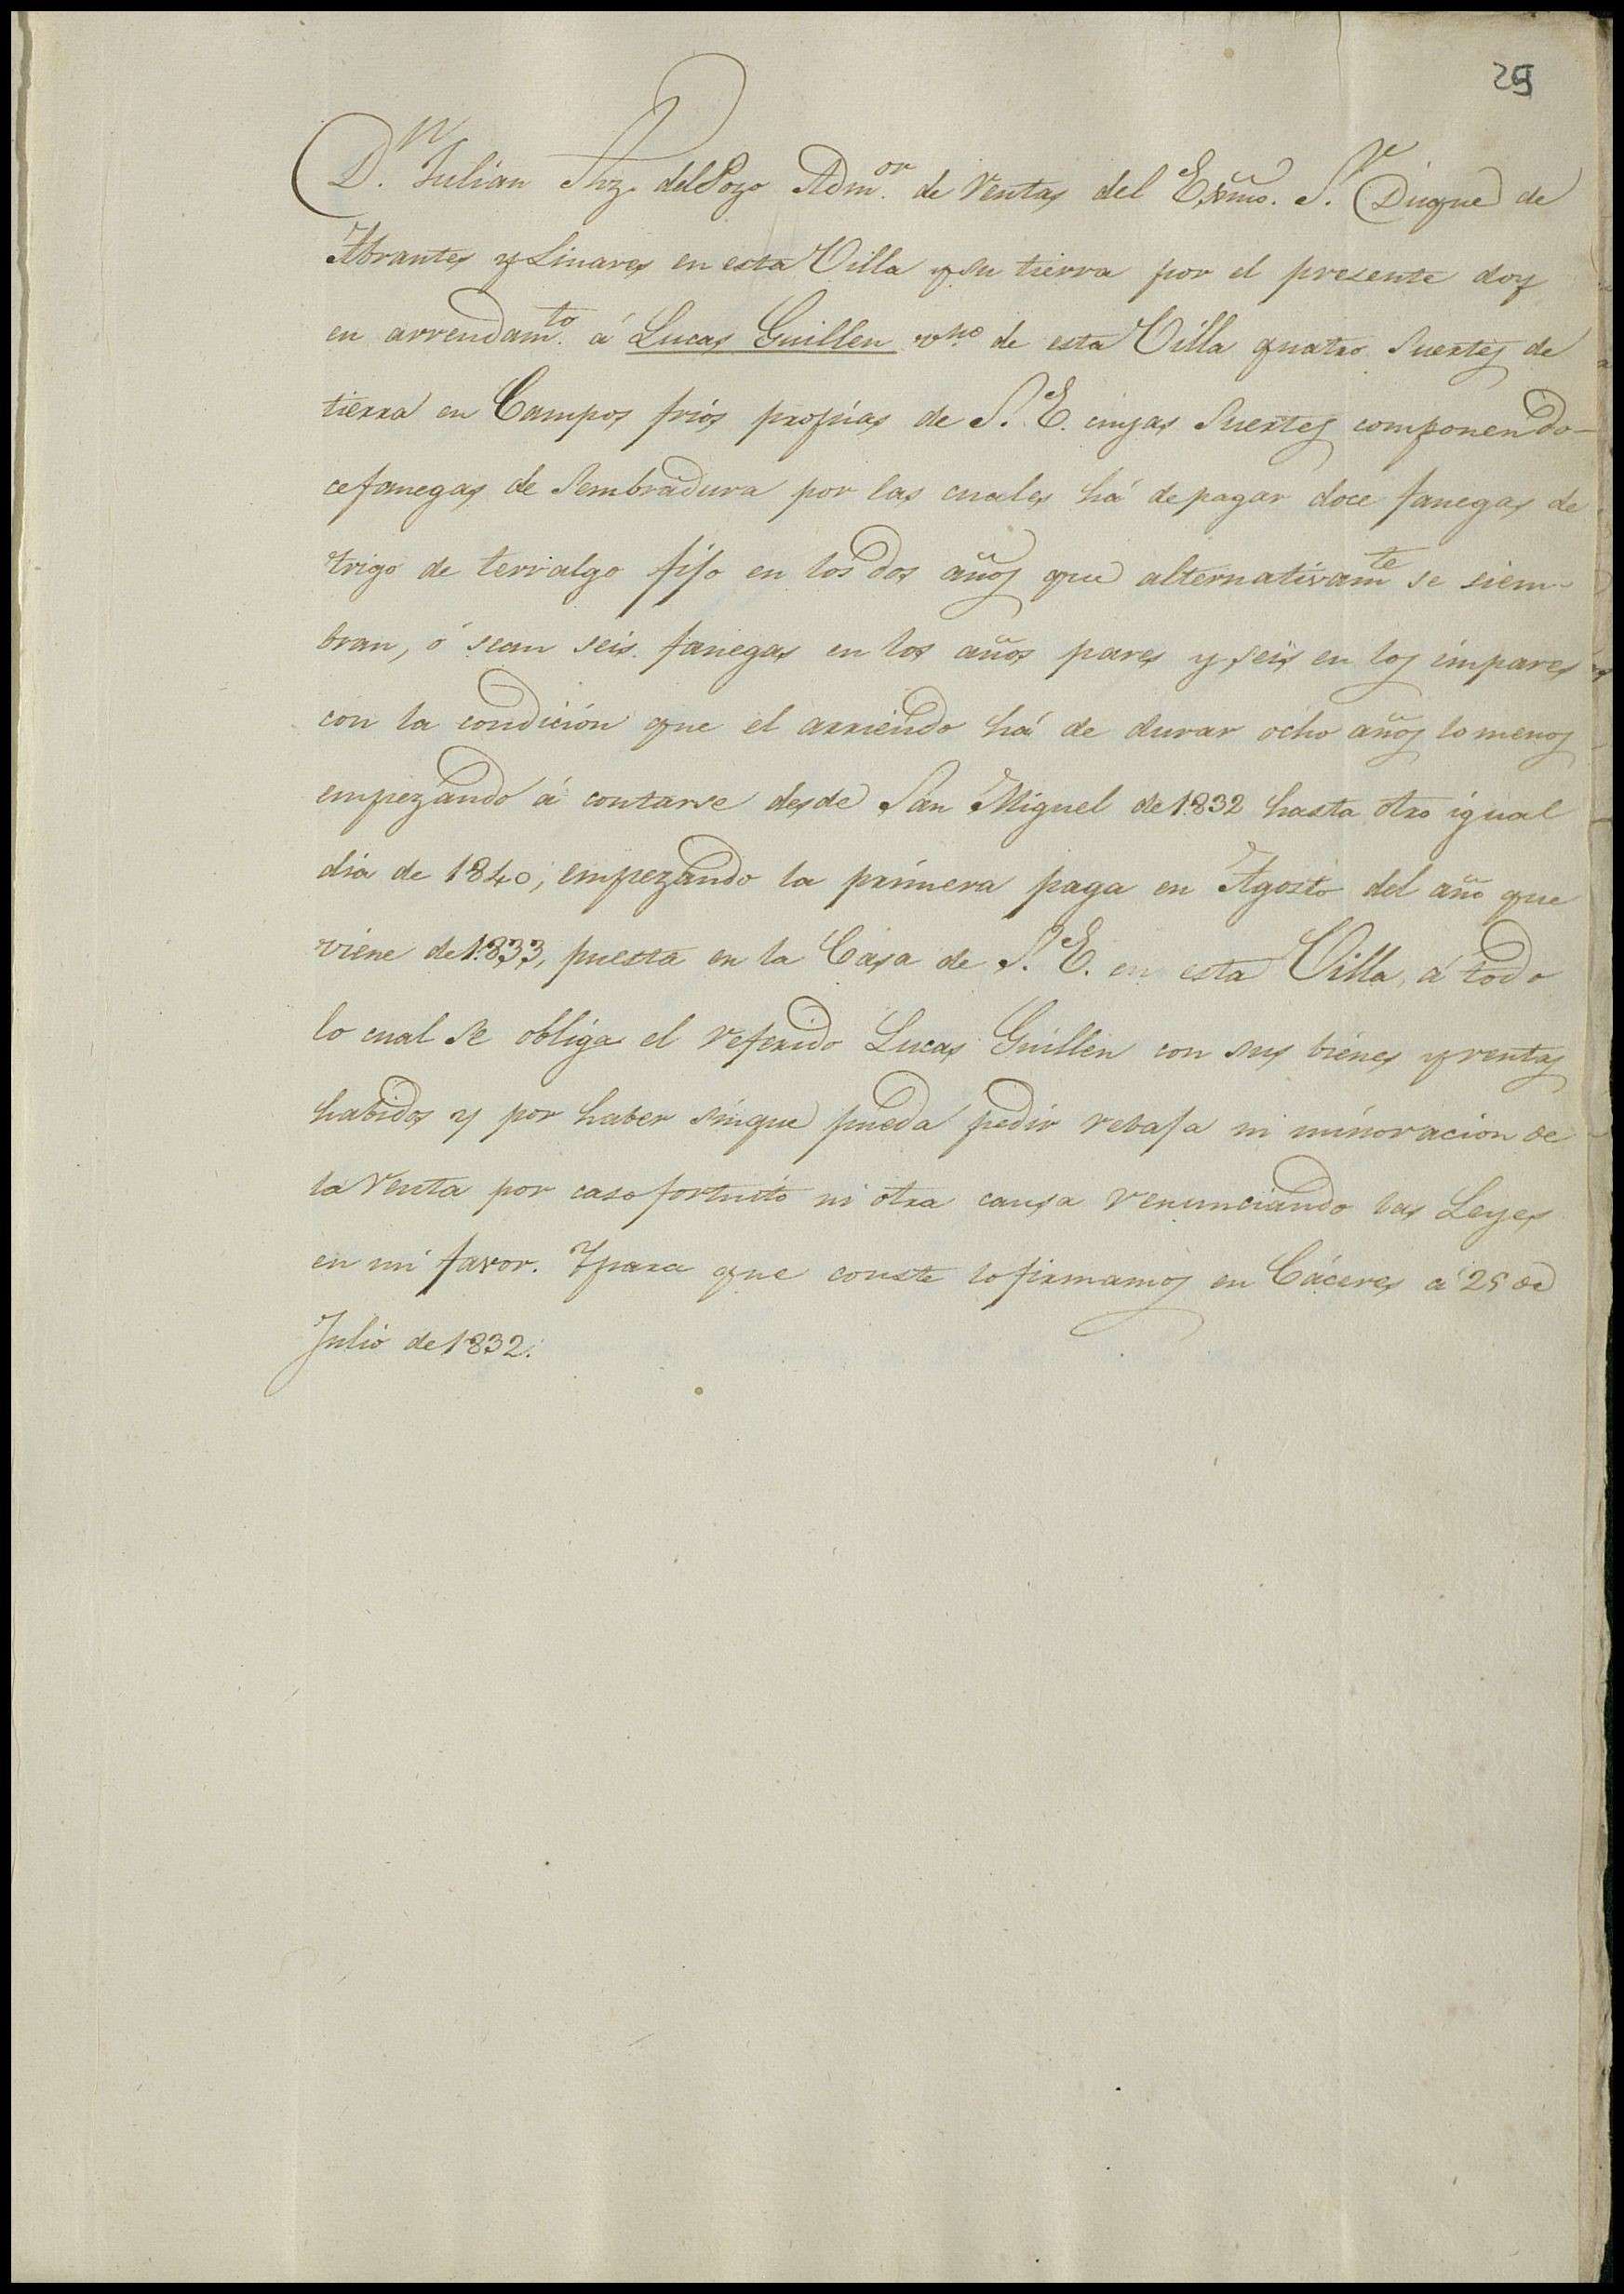 29
D.n Julian Shz. del Pozo Adm.or de rentas del Exmo. S.r Duque de
Abrantes y Linares en esta Villa y su tierra por el presente doy
en arrendam.to á Lucas Guillen v.no de esta Villa quatro suertes de
tierra en Campos frios propias de S. E. cuyas suertes componen do-
ce fanegas de sembradura por las cuales há de pagar doce fanegas de
trigo de terralgo fijo en los dos años que alternativam.te se siem-
bran, ó sean seis fanegas en los años pares y seis en los impares
con la condición que el arriendo há de durar ocho años lo menos
empezando á contarse desde San Miguel de 1832 hasta otro igual
dia de 1840; empezando la primera paga en Agosto del año que
viene de 1833, puesta en la Casa de S. E. en esta Villa, á todo
lo cual se obliga el referido Lucas Guillen con sus bienes y rentas
habidos y por haber sin que pueda pedir rebaja ni minoracion de
la renta por caso fortuito ni otra causa renunciando las Leyes
en mi favor. Y para que conste lo firmamos en Cáceres á 25 de
Julio de 1832.